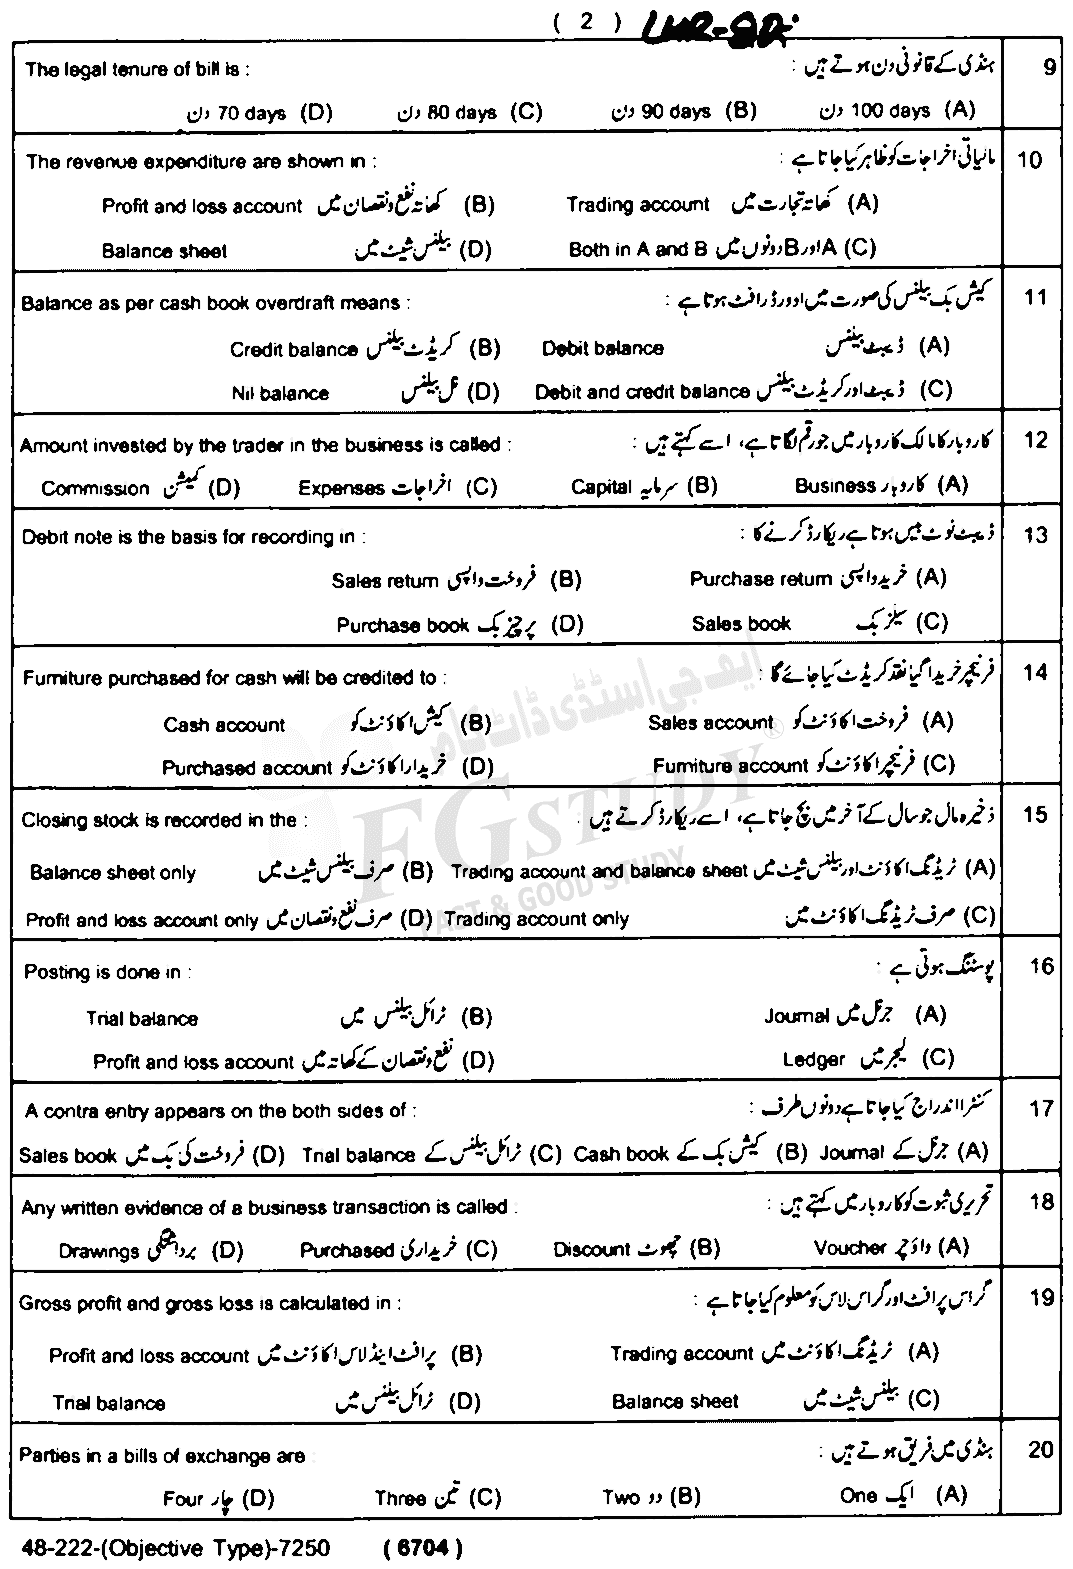 ( 2 ) LHR-
The legal tenure of bill is : ہنڈی کے قانونی دن ہوتے ہیں : 9
دن 70 days (D) دن 80 days (C) دن 90 days (B) دن 100 days (A)
The revenue expenditure are shown in : مالیاتی اخراجات کو ظاہر کیا جاتا ہے : 10
Profit and loss account کھاتہ نفع و نقصان میں (B) Trading account کھاتہ تجارت میں (A)
Balance sheet بیلنس شیٹ میں (D) Both in A and B دونوں میں B اور A (C)
Balance as per cash book overdraft means : کیش بک بیلنس کی صورت میں اوورڈرافٹ ہوتا ہے : 11
Credit balance کریڈٹ بیلنس (B) Debit balance ڈیبٹ بیلنس (A)
Nil balance نل بیلنس (D) Debit and credit balance ڈیبٹ اور کریڈٹ بیلنس (C)
Amount invested by the trader in the business is called : کاروبار کا مالک کاروبار میں جو رقم لگاتا ہے، اسے کہتے ہیں : 12
Commission کمیشن (D) Expenses اخراجات (C) Capital سرمایہ (B) Business کاروبار (A)
Debit note is the basis for recording in : ڈیبٹ نوٹ بیس ہوتا ہے ریکارڈ کرنے کا : 13
Sales return فروخت واپسی (B) Purchase return خرید واپسی (A)
Purchase book پرچیز بک (D) Sales book سیلز بک (C)
Furniture purchased for cash will be credited to : فرنیچر خریدا گیا نقد کریڈٹ کیا جائے گا : 14
Cash account کیش اکاؤنٹ کو (B) Sales account فروخت اکاؤنٹ کو (A)
Purchased account خریدار اکاؤنٹ کو (D) Furniture account فرنیچر اکاؤنٹ کو (C)
ایف جی اسٹڈی ڈاٹ کام
FG STUDY ®
FAST & GOOD STUDY
Closing stock is recorded in the : ذخیرہ مال جو سال کے آخر میں بچ جاتا ہے، اسے ریکارڈ کرتے ہیں : 15
Balance sheet only صرف بیلنس شیٹ میں (B) Trading account and balance sheet ٹریڈنگ اکاؤنٹ اور بیلنس شیٹ میں (A)
Profit and loss account only صرف نفع و نقصان میں (D) Trading account only صرف ٹریڈنگ اکاؤنٹ میں (C)
Posting is done in : پوسٹنگ ہوتی ہے : 16
Trial balance ٹرائل بیلنس میں (B) Journal جرنل میں (A)
Profit and loss account نفع و نقصان کے کھاتہ میں (D) Ledger لیجر میں (C)
A contra entry appears on the both sides of : کنٹرا اندراج کیا جاتا ہے دونوں طرف : 17
Sales book فروخت کی بک میں (D) Trial balance ٹرائل بیلنس کے (C) Cash book کیش بک کے (B) Journal جرنل کے (A)
Any written evidence of a business transaction is called : تحریری ثبوت کو کاروبار میں کہتے ہیں : 18
Drawings برداشتگی (D) Purchased خریداری (C) Discount چھوٹ (B) Voucher واؤچر (A)
Gross profit and gross loss is calculated in : گراس پرافٹ اور گراس لاس کو معلوم کیا جاتا ہے : 19
Profit and loss account پرافٹ اینڈ لاس اکاؤنٹ میں (B) Trading account ٹریڈنگ اکاؤنٹ میں (A)
Trial balance ٹرائل بیلنس میں (D) Balance sheet بیلنس شیٹ میں (C)
Parties in a bills of exchange are : ہنڈی میں فریق ہوتے ہیں : 20
Four چار (D) Three تین (C) Two دو (B) One ایک (A)
48-222-(Objective Type)-7250 ( 6704 )